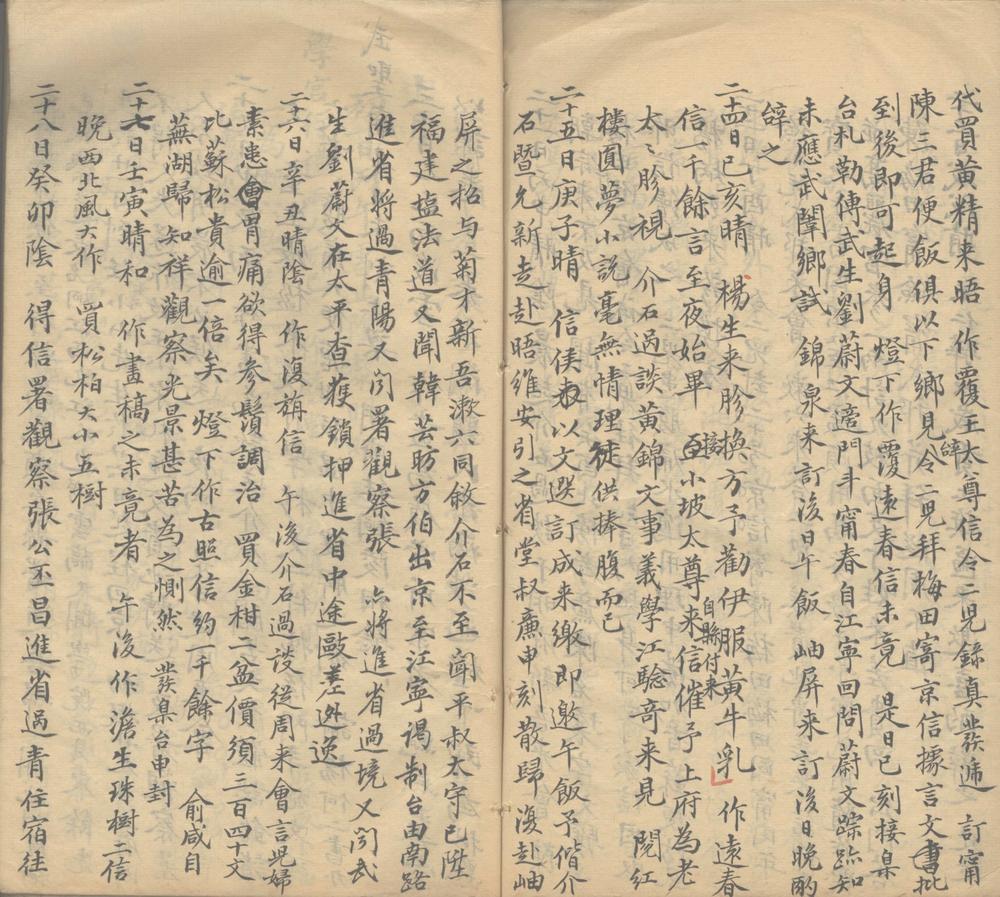 代買黃精来晤 作覆王太尊信令二兒錄真發递 訂甯
陳三君便飯俱以下鄉見辞令二児拜梅田寄京信據言文書批
到後即可起身 燈下作覆遠春信未竟 是日巳刻接臬
台札勒傳武生劉蔚文適門斗甯春自江寧回問蔚文踪跡知
未應武闈鄉試 錦泉来訂後日午飯 岫屏来訂後日晚酌
辝之
二十四日己亥晴 楊生来胗換方予勸伊服黃牛乳 作遠春
信一千餘言至夜始畢 接小坡太尊来信催予上府為老
自縣付来
太〻胗視 介石過談黃錦文事義學江騐竒来見 閱紅
樓圓夢小說毫無情理徒供捧腹而已
二十五日庚子晴 信侯以文選訂成来繳即邀午飯予偕介
石暨允新走赴晤維安引之省堂叔廉申刻散歸復赴岫
屏之招与菊才新吾漱六同敘介石不至聞平叔太守已陞
福建塩法道又聞韓芸昉方伯出京至江寧谒制台由南路
進省將過青陽又闻署觀察張 亦將進省過境又闻武
生劉蔚文在太平查獲鎖押進省中途毆差逃逸
二十六日辛丑晴陰 作復旃信 午後介石過談從周来會言児婦
素患胃痛欲得參鬚調治 買金柑二盆價須三百四十文
比蘇松貴逾一倍矣 燈下作古照信約一千餘字 俞咸自
蕪湖歸知祥觀察光景甚苦為之惻然 發臬台申封
二十七日壬寅晴和 作畫稿之未竟者 午後作澹生珠樹二信
晚西北風大作 買松柏大小五樹
二十八日癸卯陰 得信署觀察張公丕昌進省過青住宿往